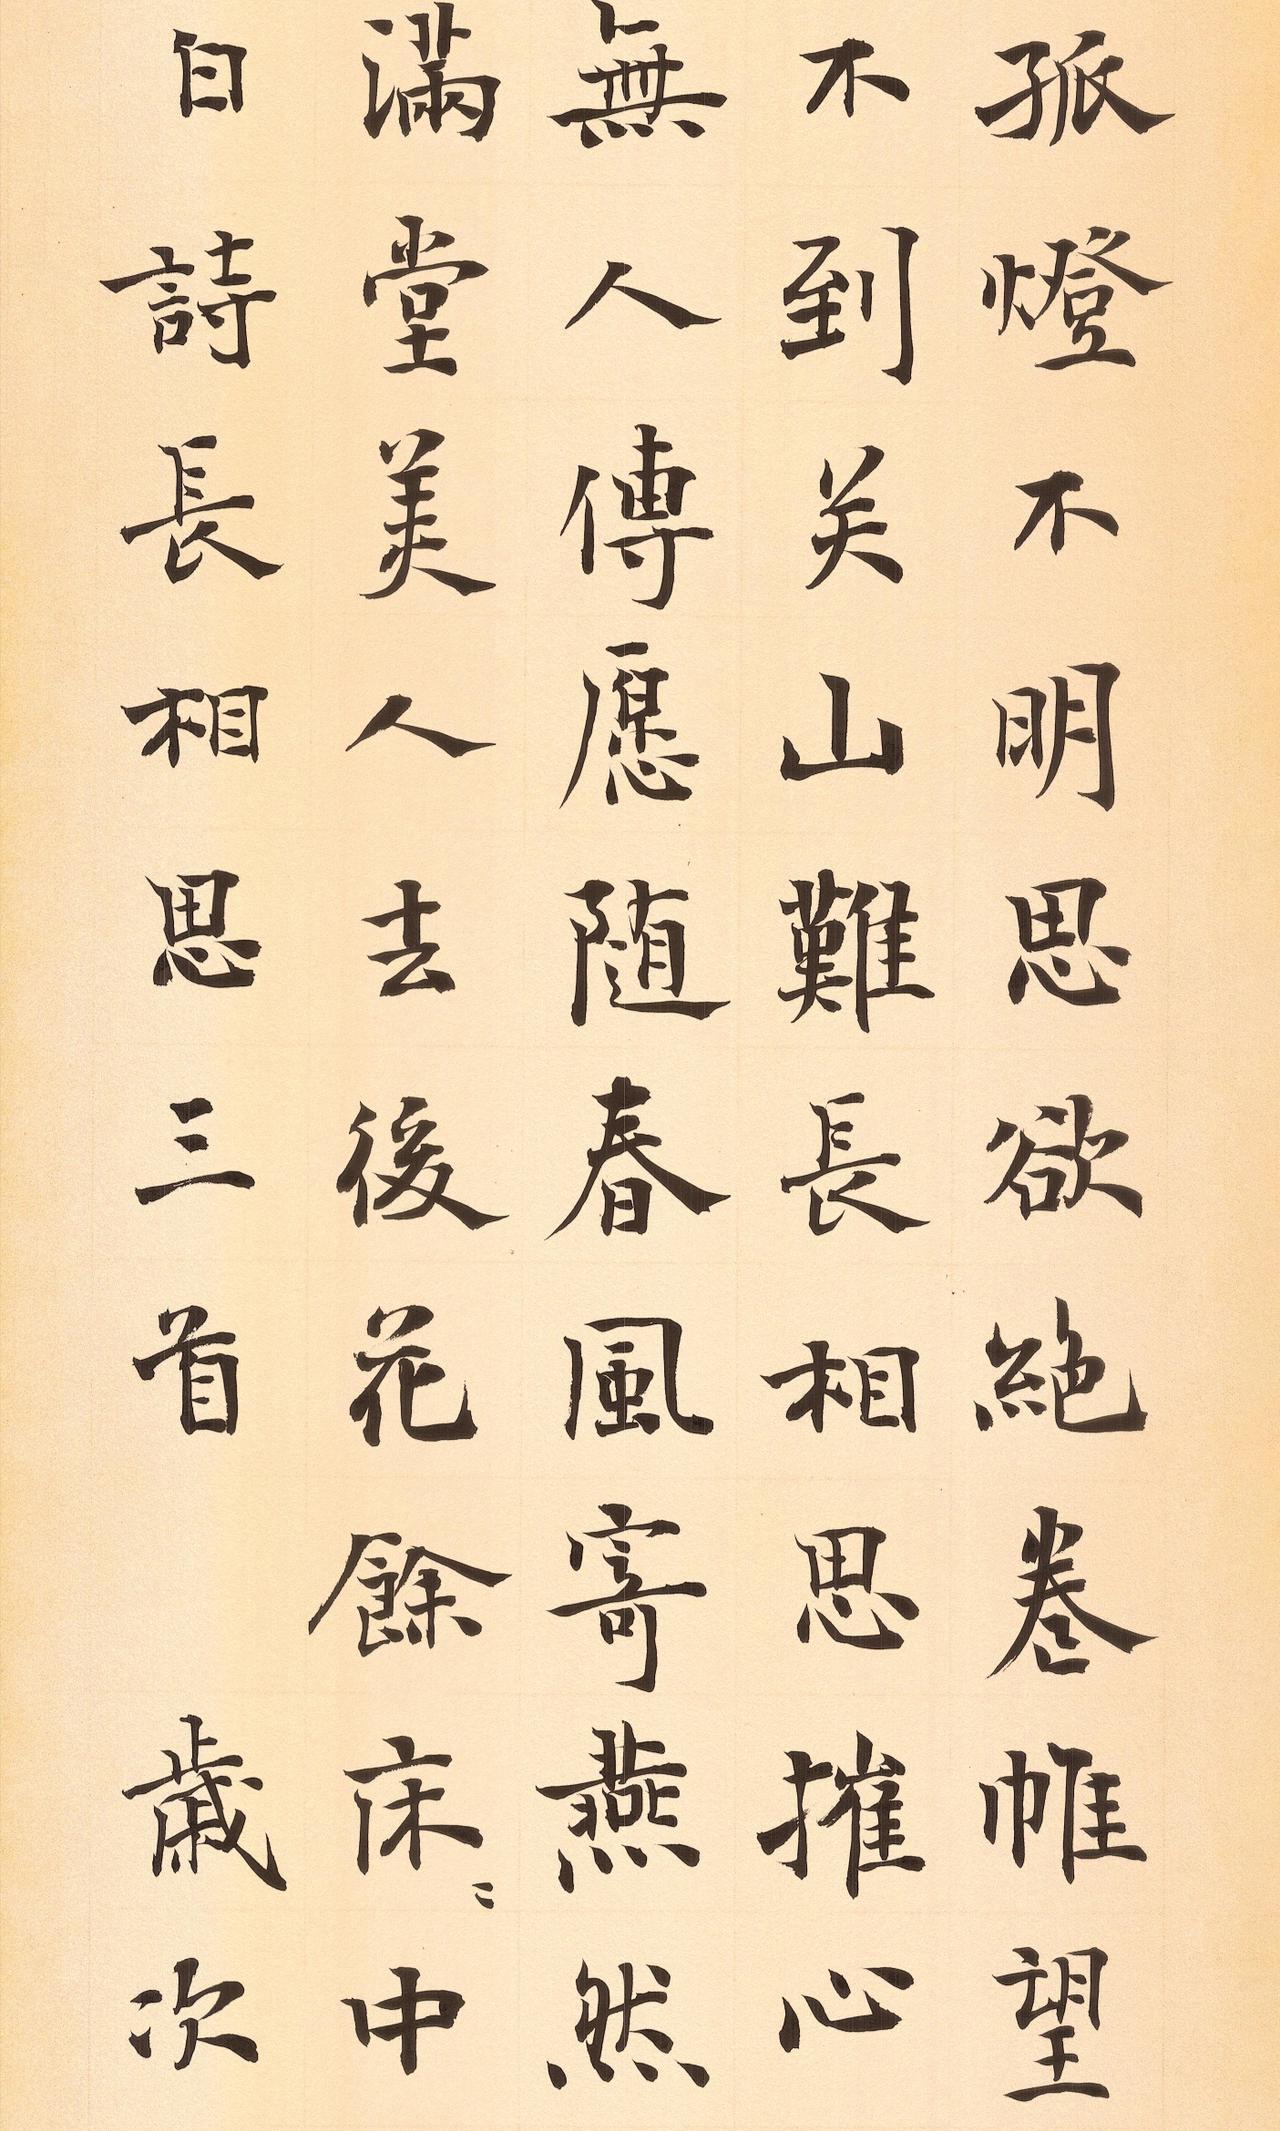 孤燈不明思欲絕卷帷望
不到关山難長相思摧心
無人傳愿随春風寄燕然
滿堂美人去後花餘床〻中
白詩長相思三首 歲次